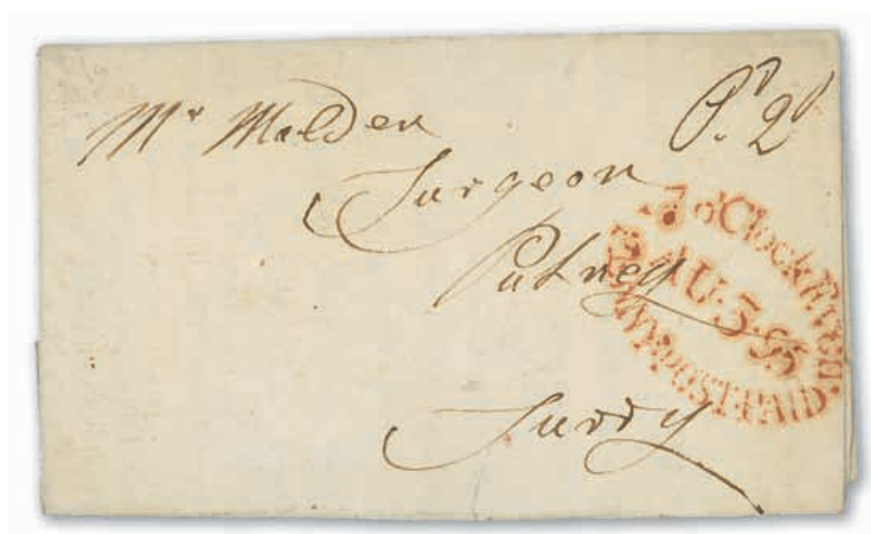 Mr Malden
Pd. 2d
Surgeon
Putney
Surry
7 o'Clock
AU. 5.
PENNY POST PAID